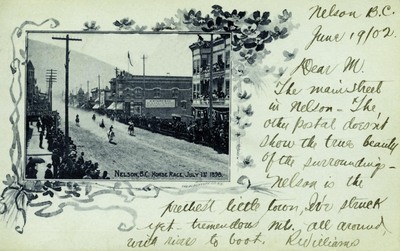 Nelson B.C.
June 19/02
Dear M.
The main street
in Nelson - The
other postal doesn't
show the true beauty
of the surroundings -
Nelson is the
prettiest little town, I've struck
yet - tremendous mts. all around
and lakes to boot. R Williams
NELSON, B.C. HORSE RACE, JULY 1ST 1898.